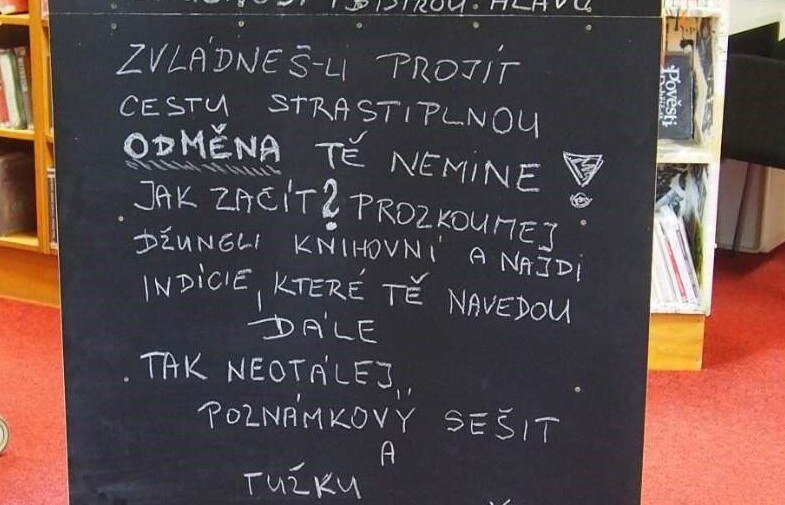 BYSTROU HLAVU
ZVLÁDNEŠ-LI PROJÍT
CESTU STRASTIPLNOU
ODMĚNA TĚ NEMINE!
JAK ZAČÍT? PROZKOUMEJ
DŽUNGLI KNIHOVNÍ A NAJDI
INDÍCIE, KTERÉ TĚ NAVEDOU
DÁLE
TAK NEOTÁLEJ,,
POZNÁMKOVÝ SEŠIT
A
TUŽKU
Pověsti